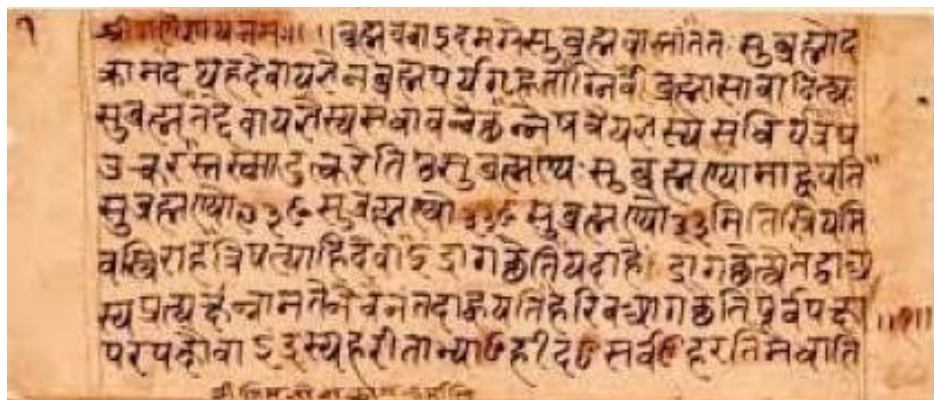 १ श्रीगणेशायनमः॥ ॥ब्रह्मचवाऽइदमग्रेसुब्रह्मचास्तांततःसुब्रह्मोद
क्रामदथहदेवायज्ञेनब्रह्मपर्यगृह्णताग्निर्वैब्रह्मासावादित्यः
सुब्रह्मतंदेवायज्ञस्यसंधावन्वैछन्नेषवैयज्ञस्यसंधिर्यत्रैष
उत्करस्तस्मादुत्करेतिष्ठसुब्रह्मण्यःसुब्रह्मण्यामाह्वयति
सुब्रह्मण्यो३ꣳसुब्रह्मण्यो३ꣳसुब्रह्मण्यो३मितिस्त्रियमि
वत्रिराहत्रिषत्याहिदेवाऽइंद्रागछेतियदाहेंद्रागछेत्येतद्वाअ
स्यप्रत्यक्षंनामतेनैवैनंतदाह्वयतिहरिवआगछेतिपूर्वपक्षा ॥१॥
परपक्षौवाऽइंद्रस्यहरीताभ्याꣳहीदꣳसर्वꣳहरतिमेधाति